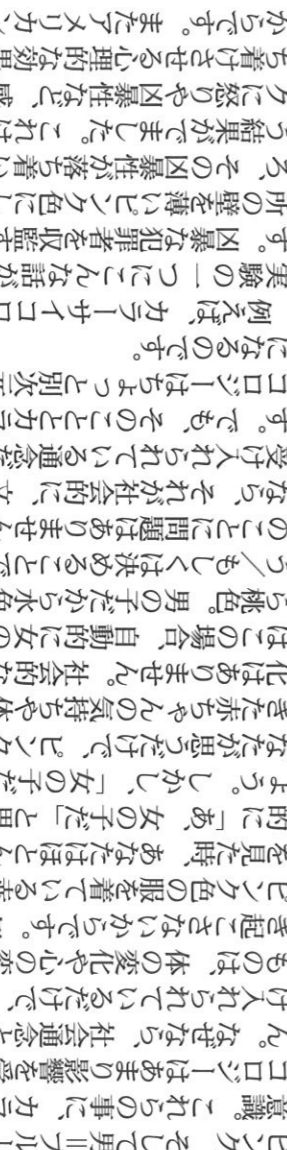 ピンク、そして男=ブルー
意識。これらの事に、カラ
コロジーはあまり影響を受
ん。なぜなら、社会通念と
け入れられているだけで、
ものは、体の変化や心の変
き起こさないからです。ピ
ピンク色の服を着ている赤
を見た時、あなたはほとん
的に「あ、女の子だ」と思
よう。しかし、「女の子だ
なたが思うだけで、ピンク
きた赤ちゃんの気持ちや体
化はありません。社会的な
はこの場合、自動的に女の
ら桃色。男の子だから水色
う/もしくは決めることで
のことに問題はありません
なら、それが社会的に、文
受け入れられている通念だ
す。でも、そのこととカラ
コロジーはちょっと別次元
になるのです。
例えば、カラーサイコロ
実験の一つにこんな話が
す。凶暴な犯罪者を収監す
所の壁を薄いピンク色にし
ろ、その凶暴性が落ち着い
う結果がでました。これは
クに怒りや凶暴性など、感
ち着けさせる心理的な効果
からです。またアメリカン